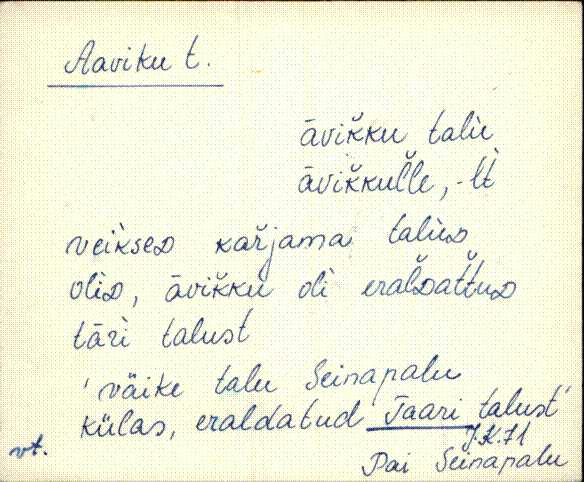 Aaviku t.
āvik̆ku talù
āvik̆kul̆le, -lt
veikseᴅ kar̆jama taluᴅ
oliᴅ, āvik̆ku oli eral̆ᴅat̆tuᴅ
tāri talust
'väike talu Seinapalu
külas, eraldatud Taari talust'
vt.
J.K.71
Pai Seinapalu